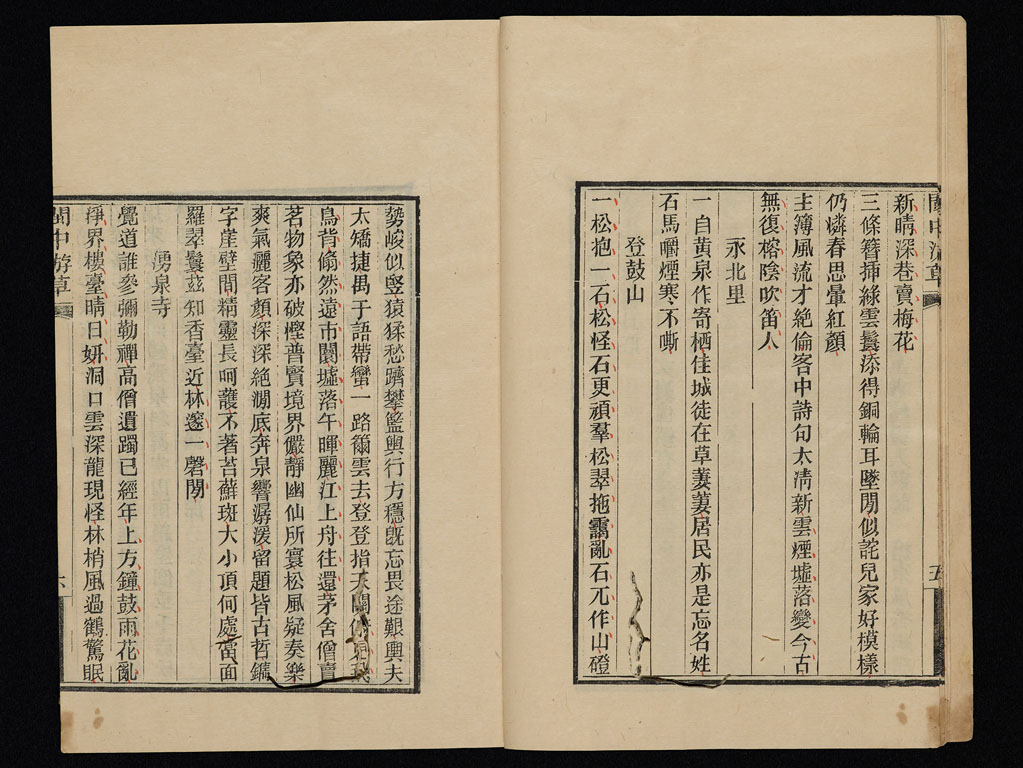 閩中游草
五
新晴深巷賣梅花
三條簪插綠雲鬟添得銅輪耳墜閒似詫兒家好模樣
仍憐春思暈紅顏
主簿風流才絕倫客中詩句太清新雲煙墟落變今古
無復榕陰吹笛人
永北里
一自黃泉作寄栖佳城徒在草萋萋居民亦是忘名姓
石馬嚼煙寒不嘶
登鼓山
一松抱一石松怪石更頑羣松翠拖靄亂石兀作山磴
勢峻似豎猿猱愁躋攀籃輿行方穩旣忘畏途艱輿夫
太矯捷禺于語帶蠻一路籋雲去登登指天關俯
鳥背翛然遠市闤墟落午暉麗江上舟往還茅舍僧賣
茗物象亦破慳普賢境界儼靜幽仙所寰松風疑奏樂
爽氣麗客顏深深絕澗底奔泉響潺湲留題皆古哲鐫
字崖壁間精靈長呵護不著苔蘚斑大小頂何處當面
羅翠鬟茲知香臺近林邃一磬閒
湧泉寺
覺道誰參彌勒禪高僧遺躅已經年上方鐘鼓雨花亂
淨界樓臺晴日妍洞口雲深龍現怪林梢風過鶴驚眠
閩中游草
六